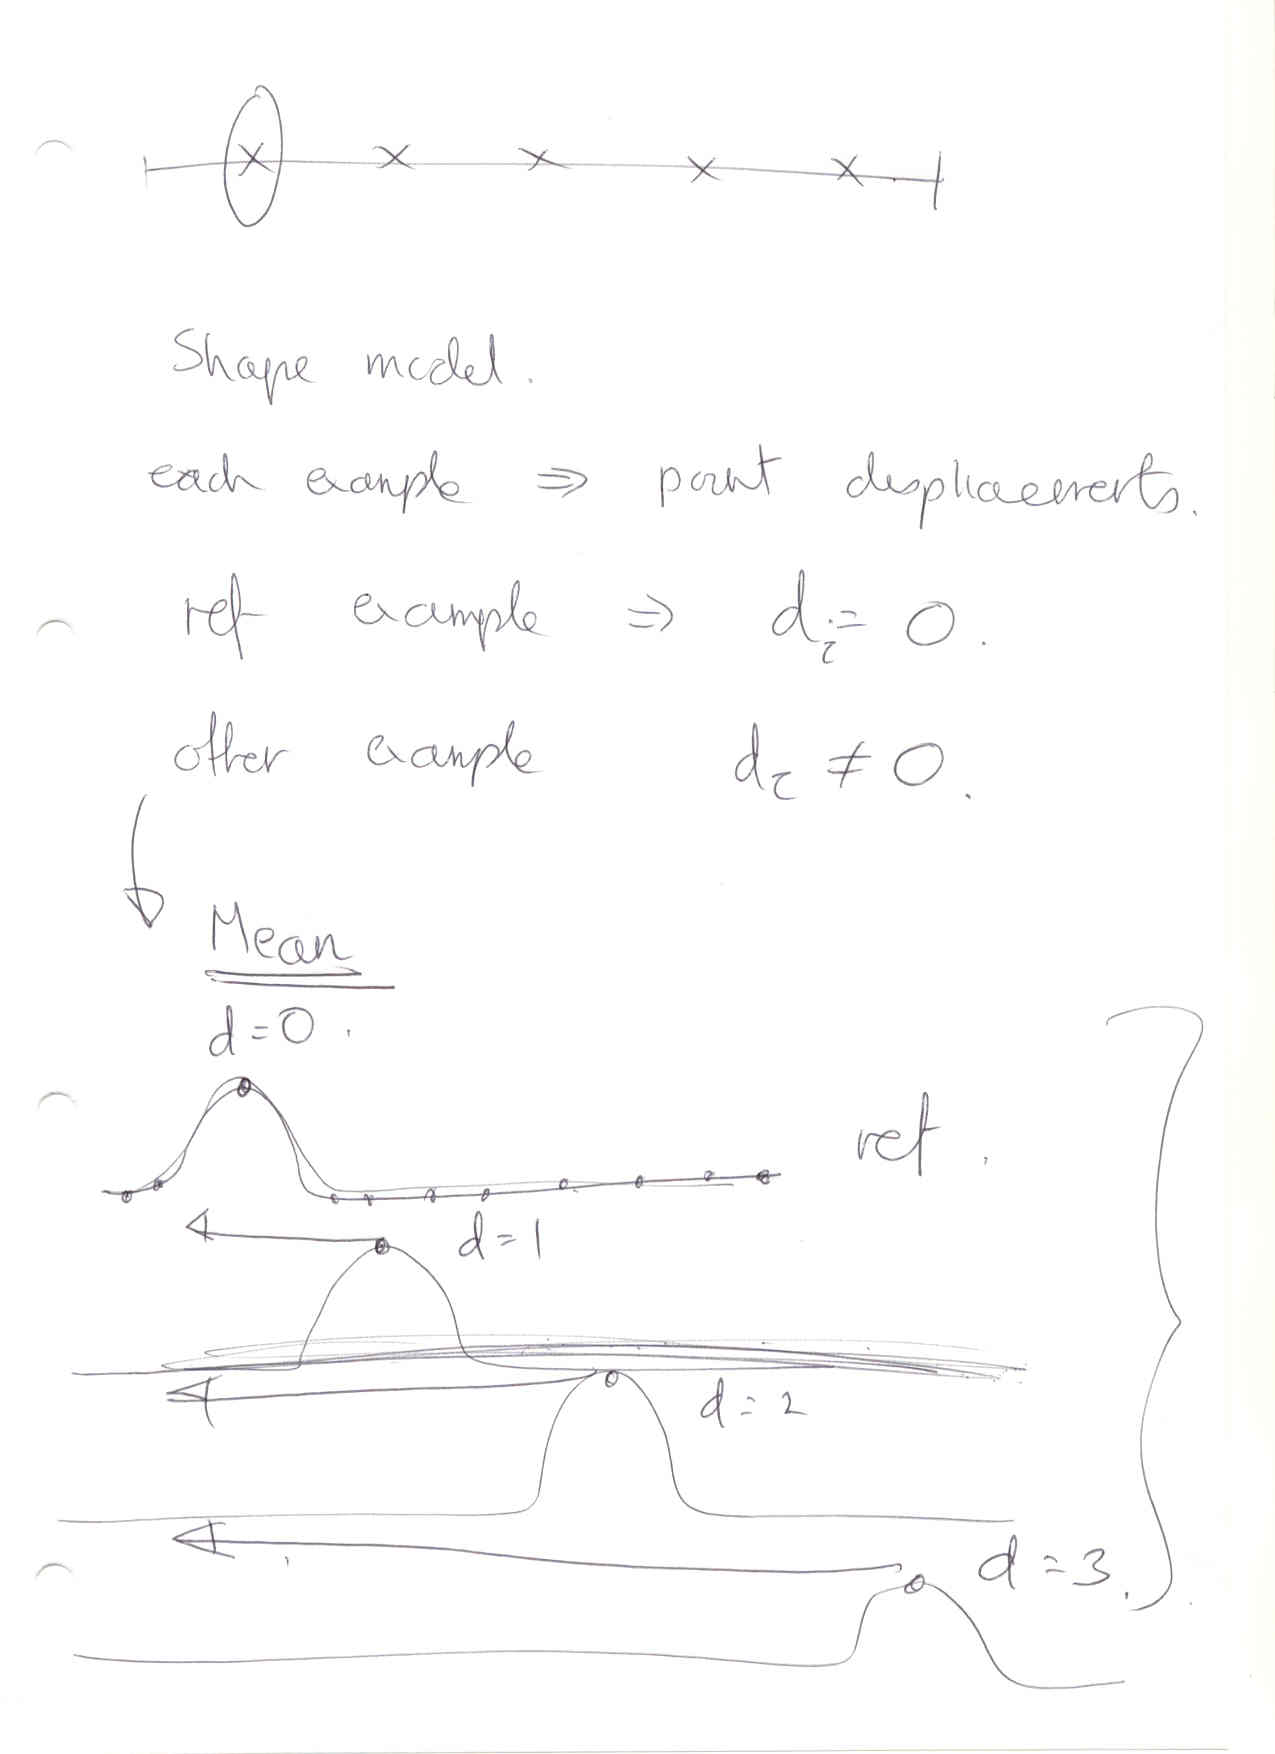 Shape model.
each example ⇒ point displacements.
ref example ⇒ d_i = 0.
other example d_i ≠ 0.
Mean
d=0.
ref.
d=1
d=2
d=3.